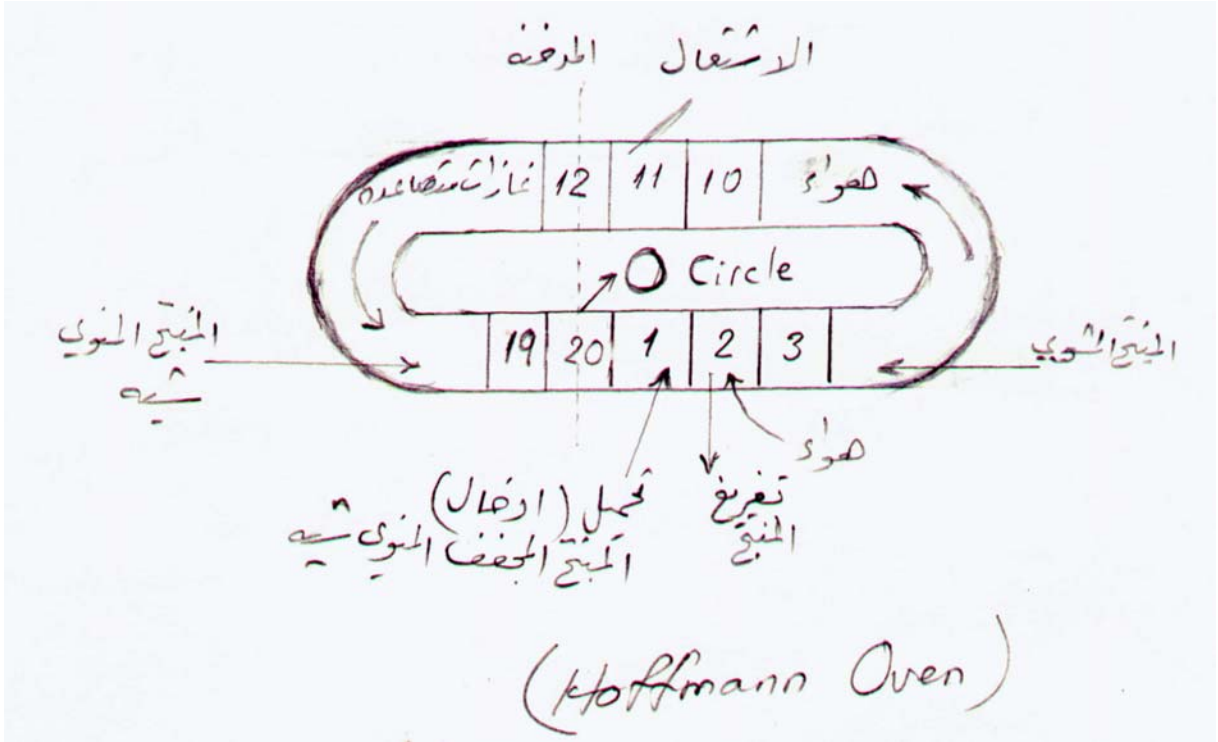 الاشتعال المدخنه
غازات متصاعده 12 11 10 هواء
Circle
19 20 1 2 3
المنتج المنوي
شيه
المنتج المشوي
هواء
تحميل (ادخال)
المنتج المجفف المنوي شيه
تفريغ
المنتج
(Hoffmann Oven)